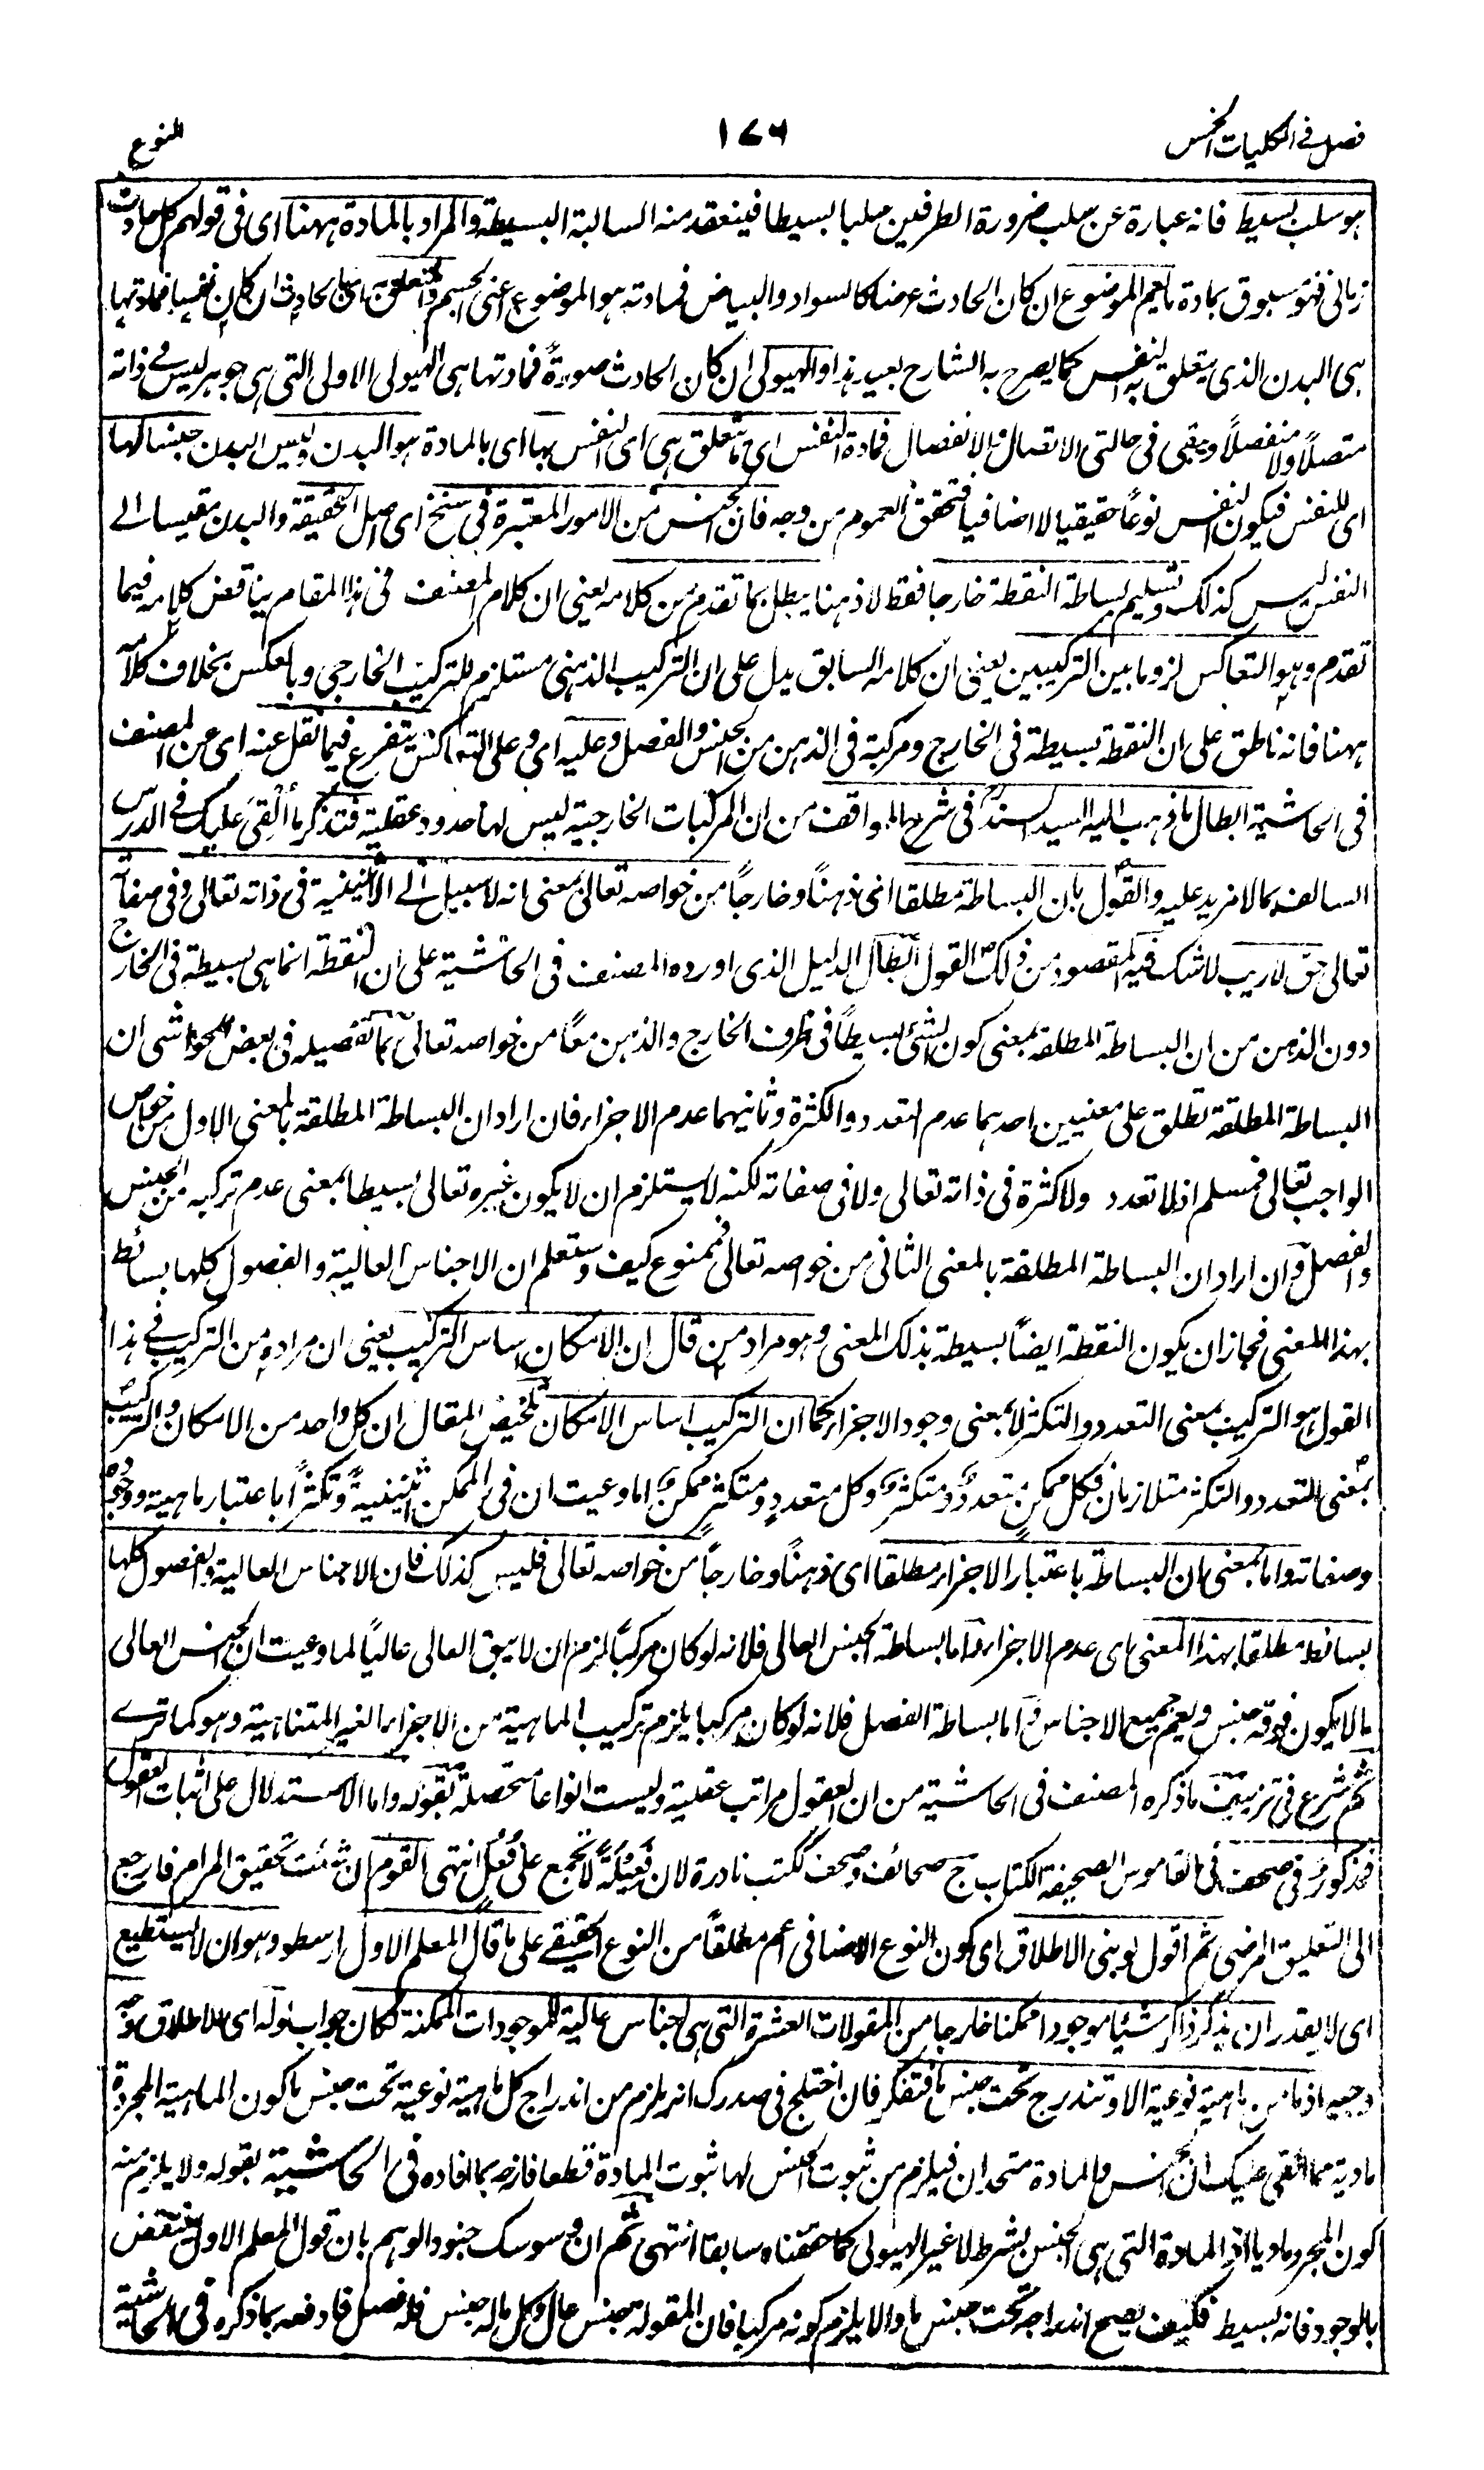 فصل في الكليات الخمس
١٧٦
النوع
هو سلب بسيط فانه عبارة عن سلب ضرورة الطرفين سلبا بسيطا فينعقد منه السالبة البسيطة والمراد بالمادة ههنا اى فى قولهم كل حادث
زمانى فهو مسبوق بمادة ما يعم الموضوع ان كان الحادث عرضا كالسواد والبياض فمادته هو الموضوع اعنى الجسم والمتعلق به اى بالحادث ان كان نفسا فمادتها
هى البدن الذى يتعلق به النفس كما يصرح به الشارح بعيد هذا والهيولى ان كان الحادث صورةً فمادتها هى الهيولى الاولى التى هى جوهر ليس فى ذاته
متصلاً ولا منفصلاً ويبقى فى حالتى الاتصال والانفصال فمادة النفس اى ما يتعلق هى اى النفس بها اى بالمادة هو البدن وليس البدن جنسا لها
اى للنفس فيكون النفس نوعاً حقيقيا لا اضافيا فتحقق العموم من وجه فان الجنس من الامور المعتبرة فى سنخ اى اصل الحقيقة والبدن مقيسا الى
النفس ليس كذلك وتسليم بساطة النقطة خارجا فقط لا ذهنا يبطل بما تقدم من كلامه يعنى ان كلام المصنف فى هذا المقام يناقض كلامه فيما
تقدم وهو التعاكس لزوما بين التركيبين يعنى ان كلامه السابق يدل على ان التركيب الذهنى مستلزم للتركيب الخارجى وبالعكس بخلاف كلامه
ههنا فانه ناطق على ان النقطة بسيطة فى الخارج ومركبة فى الذهن من الجنس والفصل وعليه اى وعلى التعاكس يتفرع فيما نقل عنه اى عن المصنف
فى الحاشية ابطال ما ذهب اليه السيد السند فى شرح المواقف من ان المركبات الخارجية ليس لها حدود عقلية فتذكر ما أُلقى عليك فى الدرس
السالف بما لا مزيد عليه والقول بان البساطة مطلقا اى ذهناً وخارجاً من خواصه تعالى بمعنى انه لا سبيل الى الاثنينية فى ذاته تعالى وفى صفاته
تعالى حق لا ريب لا شك فيه المقصود من ذلك القول ابطال الدليل الذى اورده المصنف فى الحاشية على ان النقطة انما هى بسيطة فى الخارج
دون الذهن من ان البساطة المطلقة بمعنى كون الشئ بسيطاً فى ظرف الخارج والذهن معاً من خواصه تعالى كما تفصيله فى بعض الحواشى ان
البساطة المطلقة تطلق على معنيين احدهما عدم التعدد والكثرة وثانيهما عدم الاجزاء فان اراد ان البساطة المطلقة بالمعنى الاول من خواص
الواجب تعالى فمسلم اذ لا تعدد ولا كثرة فى ذاته تعالى ولا فى صفاته لكنه لا يستلزم ان لا يكون غيره تعالى بسيطا بمعنى عدم تركبه من الجنس
والفصل وان اراد ان البساطة المطلقة بالمعنى الثانى من خواصه تعالى فممنوع كيف وستعلم ان الاجناس العالية والفصول كلها بسائط
بهذا المعنى فجاز ان يكون النقطة ايضاً بسيطة بذلك المعنى وهو مراد من قال ان الامكان اساس التركيب يعنى ان مراده من التركيب فى هذا
القول هو التركيب بمعنى التعدد والتكثر لا بمعنى وجود الاجزاء كما ان التركيب اساس الامكان تلخيص المقال ان كل واحد من الامكان والتركيب
بمعنى التعدد والتكثر متلازمان فكل ممكن متعدد ومتكثر وكل متعدد ومتكثر ممكن اما وعيت ان فى الممكن اثنينيةً وتكثراً باعتبار ماهيته ووجوده
وصفاته واما بمعنى ان البساطة باعتبار الاجزاء مطلقا اى ذهناً وخارجاً من خواصه تعالى فليس كذلك فان الاجناس العالية والفصول كلها
بسائط مطلقا بهذا المعنى اى عدم الاجزاء اما بساطة الجنس العالى فلانه لو كان مركبا لزم ان لا يبقى العالى عالياً لما وعيت ان الجنس العالى
ما لا يكون فوقه جنس ويعم جميع الاجناس واما بساطة الفصل فلانه لو كان مركبا يلزم تركيب الماهية من الاجزاء الغير المتناهية وهو كما ترى
ثم شرع فى تزييف ما ذكره المصنف فى الحاشية من ان العقول مراتب عقلية وليست انواعا متحصلة بقوله واما الاستدلال على اثبات العقول
فمذكور فى صحف فى القاموس الصحيفة الكتاب ج صحائف وصحف ككتب نادرة لان فَعِيلَةً لا تجمع على فُعُل انتهى القوم ان شئت تحقيق المرام فارجع
الى التعليق المرضى ثم اقول يوهنى الاطلاق اى كون النوع الاضافى اعم مطلقاً من النوع الحقيقى على ما قال المعلم الاول ارسطو وهو ان لا يستطيع
اى لا يقدر ان يذكر ذاكر شيئا موجودا ممكنا خارجا من المقولات العشرة التى هى اجناس عالية للموجودات الممكنة لكان جواب لو له اى للاطلاق وجه
وجيه اذ ما من ماهية نوعية الا وتندرج تحت جنس ما فتفكر فان اختلج فى صدرك انه يلزم من اندراج كل ماهية نوعية تحت جنس ما كون الماهية المجردة
مادية مما القى عليك ان الجنس والمادة متحدان فيلزم من ثبوت الجنس لها ثبوت المادة قطعا فازحه بما افاده فى الحاشية بقوله ولا يلزم منه
كون المجرد ماديا اذ المادة التى هى الجنس بشرط لا غير الهيولى كما حققناه سابقا انتهى ثم ان وسوسك جنود الوهم بان قول المعلم الاول منتقض
بالوجود فانه بسيط فكيف يصح اندراجه تحت جنس ما والا يلزم كونه مركبا فان المقولة جنس عال وكل ما له جنس فله فصل فادفعه بما ذكره فى الحاشية